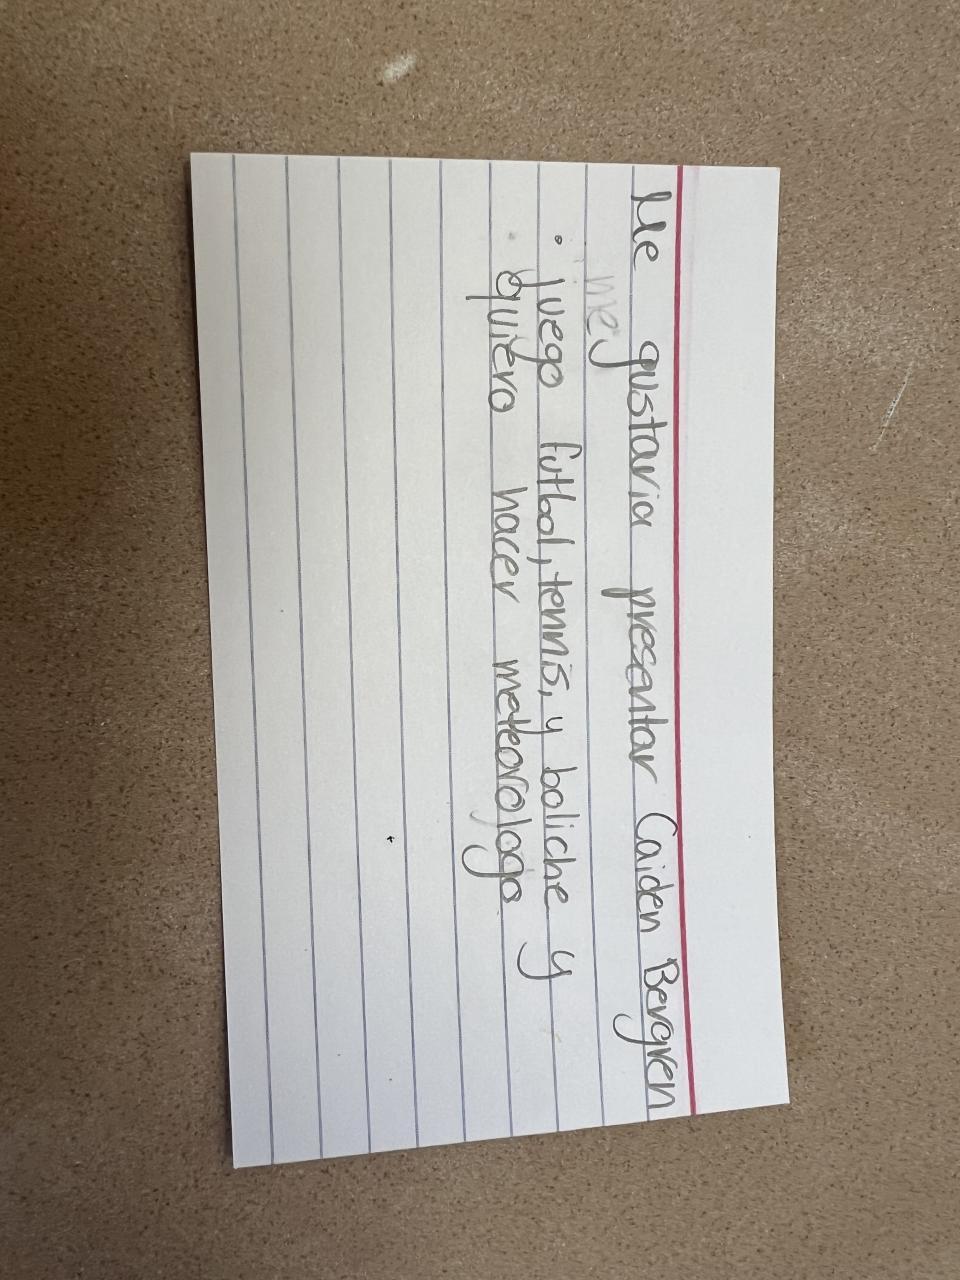 Me gustaria presentar Caiden Bergren
me
• juego futbol, tennis, y boliche y
• quiero hacer meteorologo